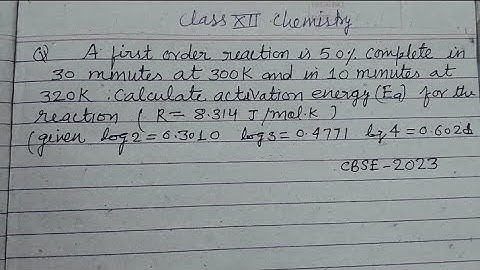 Class XII Chemistry
Q A first order reaction is 50% complete in
30 minutes at 300K and in 10 minutes at
320K. Calculate activation energy (Ea) for the
reaction (R = 8.314 J/mol.K)
(given log2 = 0.3010 log3 = 0.4771 log4 = 0.6021)
CBSE-2023